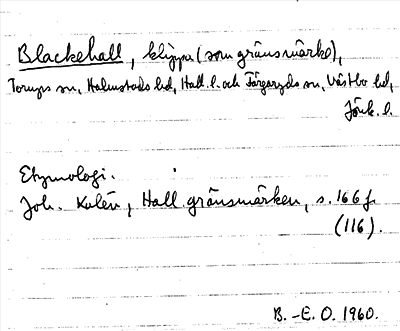 Blackehall, klippa (som gränsmärke),
Torups sn, Halmstads hd, Hall. l. och Färgaryds sn, Västbo hd,
Jönk. l.
Etymologi.
Joh. Kalén, Hall. gränsmärken, s. 166 f.
(116).
B.-E. O. 1960.